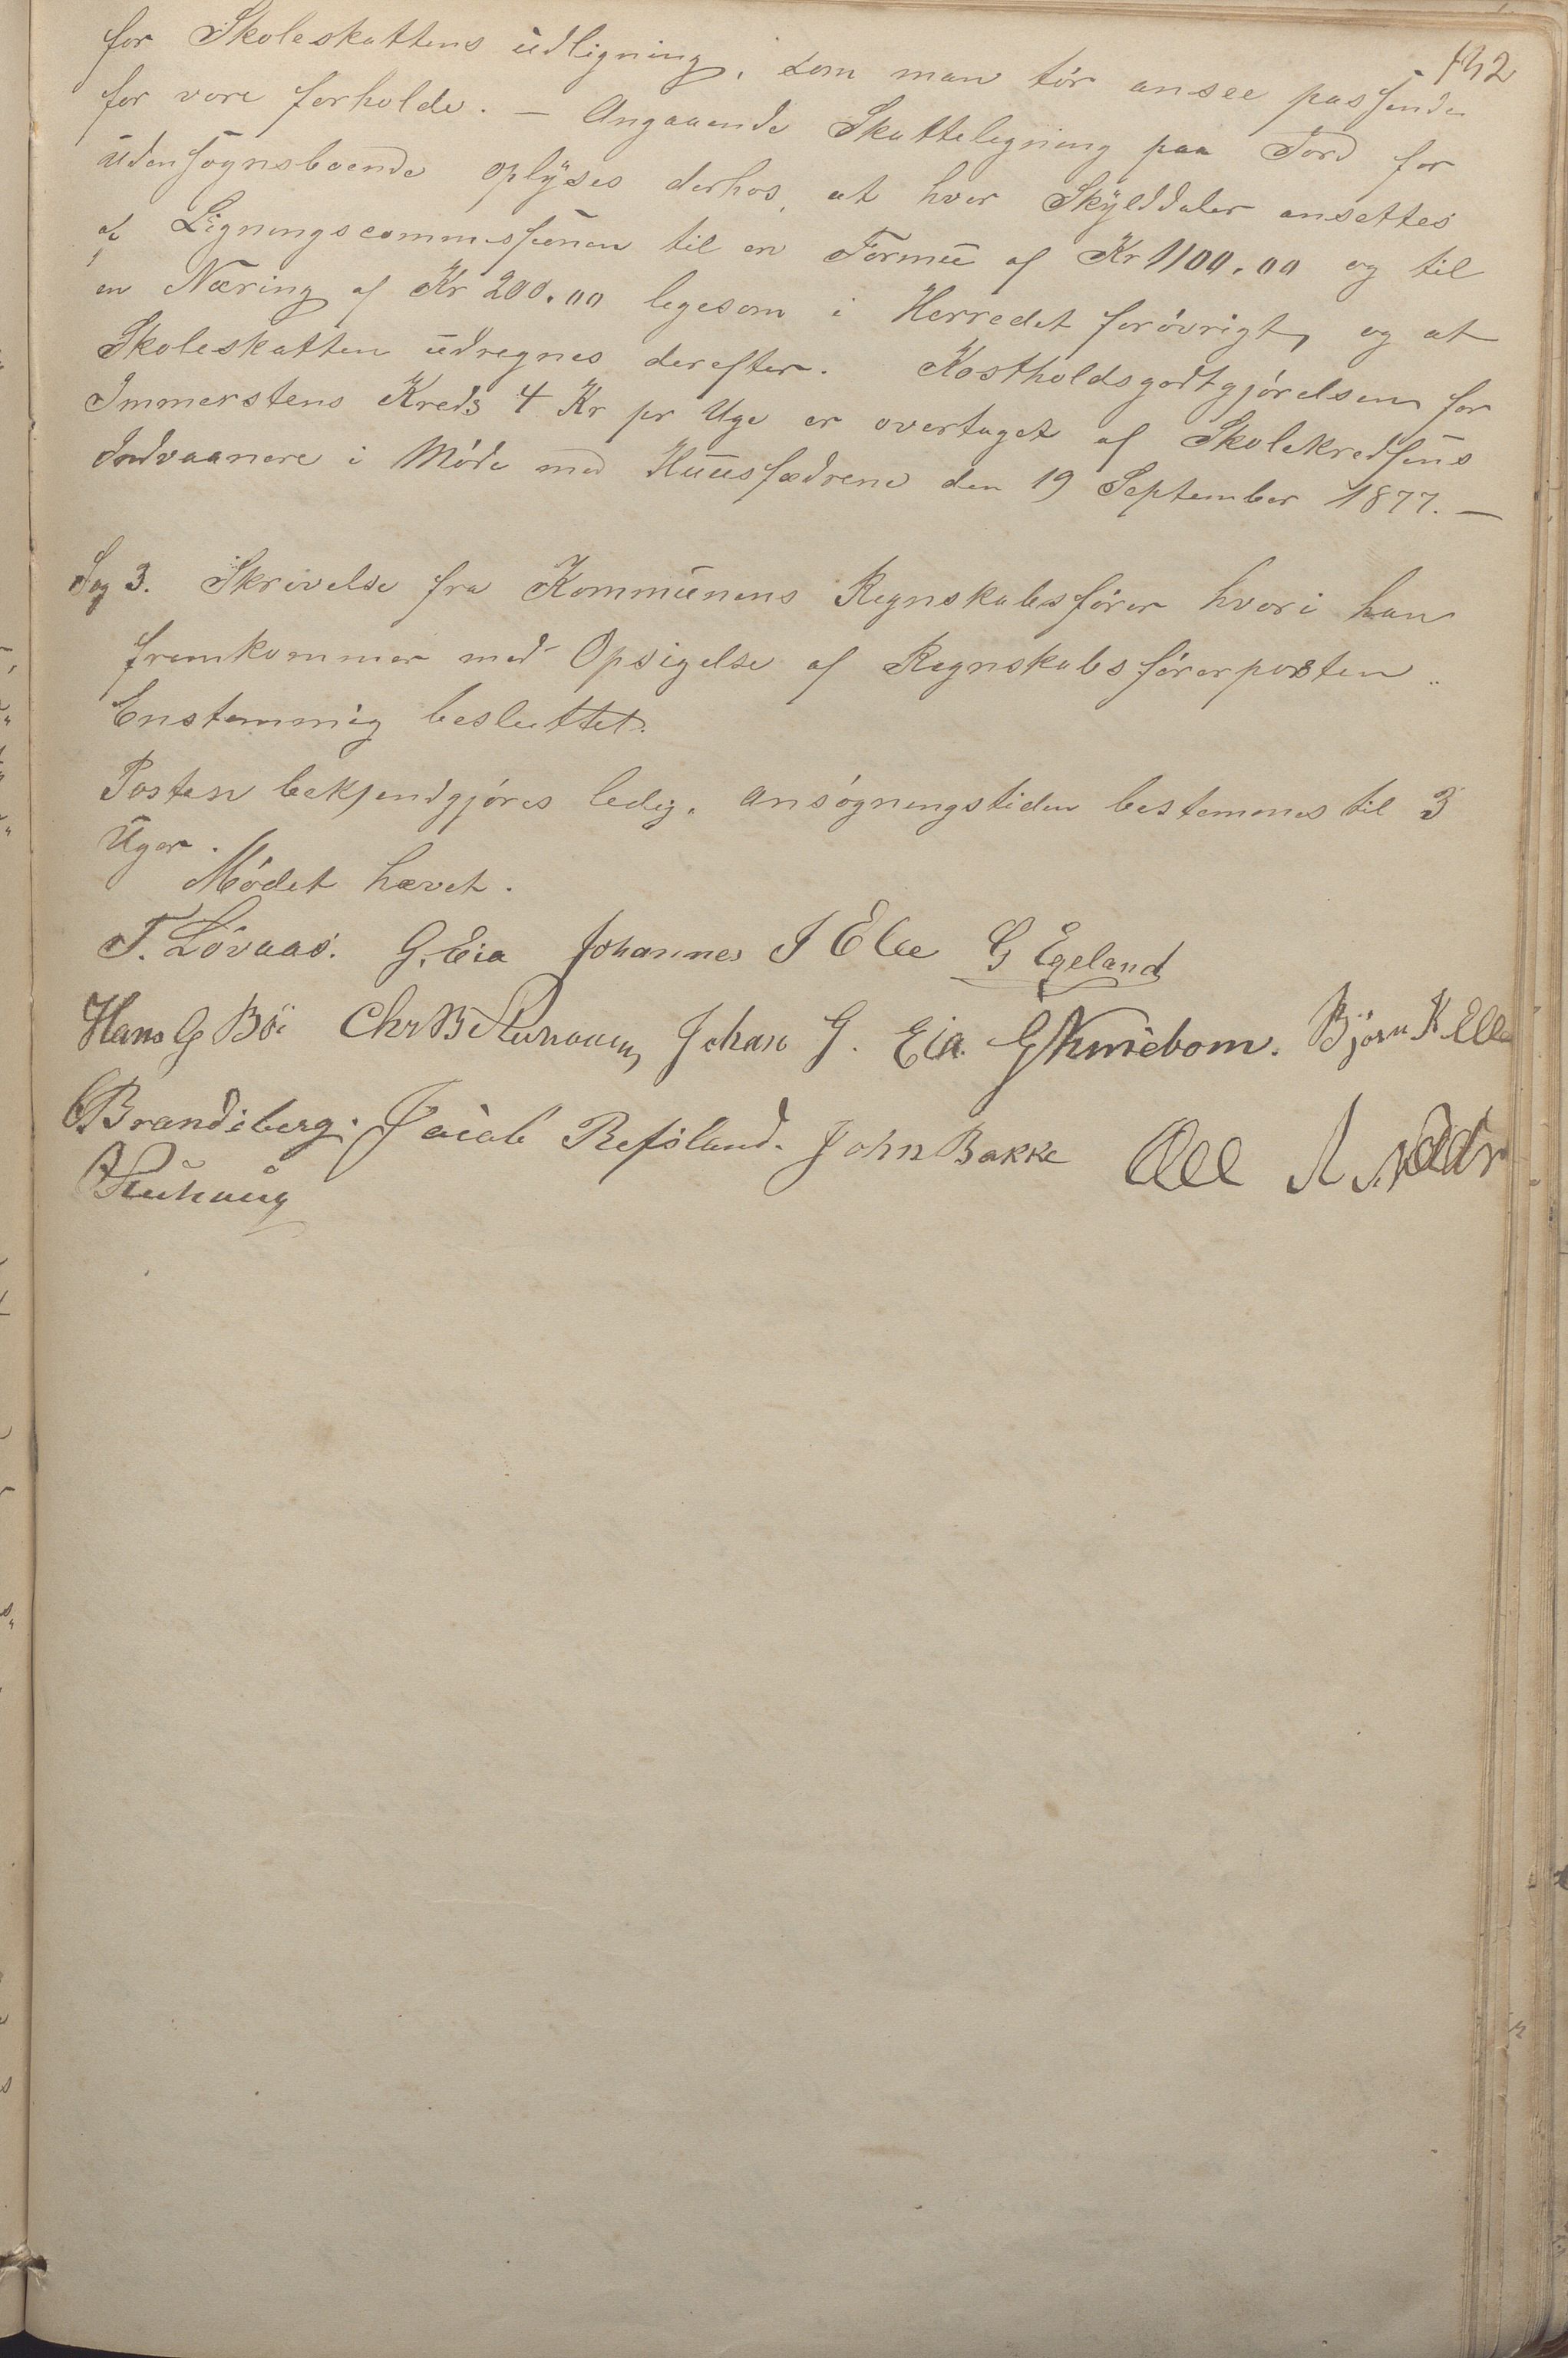 132
for Skoleskattens udligning, som man tør ansee passende
for vore forholde. — Angaaende Skattelegning paa Jord for
udensognsboende oplyses derhos, at hver Skylddaler ansettes
af Ligningscommissionen til en Formue af Kr 1100.00 og til
en Næring af Kr 200.00 legesom i Herredet forøvrigt, og at
Skoleskatten udregnes derefter. Kostholdsgodtgjørelsen for
Immerstens Kreds 4 Kr pr Uge er overtaget af Skolekredsens
Indvaanere i Møde med Huusfædrene den 19 September 1877. —
Sag 3. Skrivelse fra Kommunens Regnskabsfører hvori han
fremkommer med Opsigelse af Regnskabsførerposten.
Enstemmig besluttet.
Posten bekjendgjøres ledig. Ansøgningstiden bestemmes til 3
Uger.
Mødet hævet.
T. Løvaas. G. Eia Johannes J Elle G Egeland
Hans G Böe Chr B Johan G. Eia. G Kvidebom. Björn K Elle
Brandsberg. Jacob Refsland. John Bakke